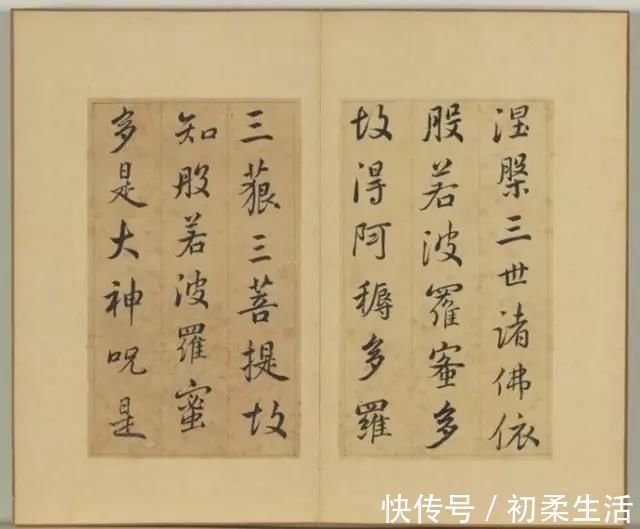 涅槃三世诸佛依
般若波羅蜜多
故得阿耨多羅
三藐三菩提故
知般若波羅蜜
多是大神咒是
快传号/初柔生活